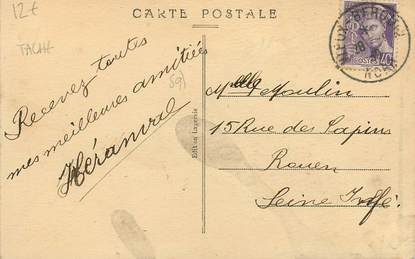 12€
TACHE
59)
CARTE POSTALE
Recevez toutes
mes meilleures amitiés
Héranval
Edition Lageoste
Melle Moulin
15 Rue des Sapins
Rouen
Seine Infé.
POSTES 40c
NORD